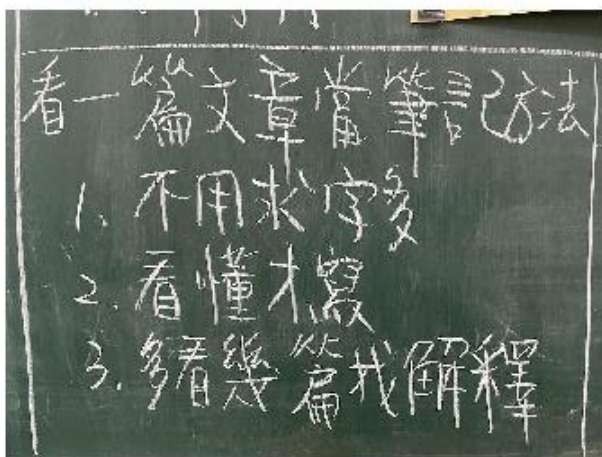 看一篇文章當筆記方法
1. 不用求字多
2. 看懂才寫
3. 多看幾篇找解釋